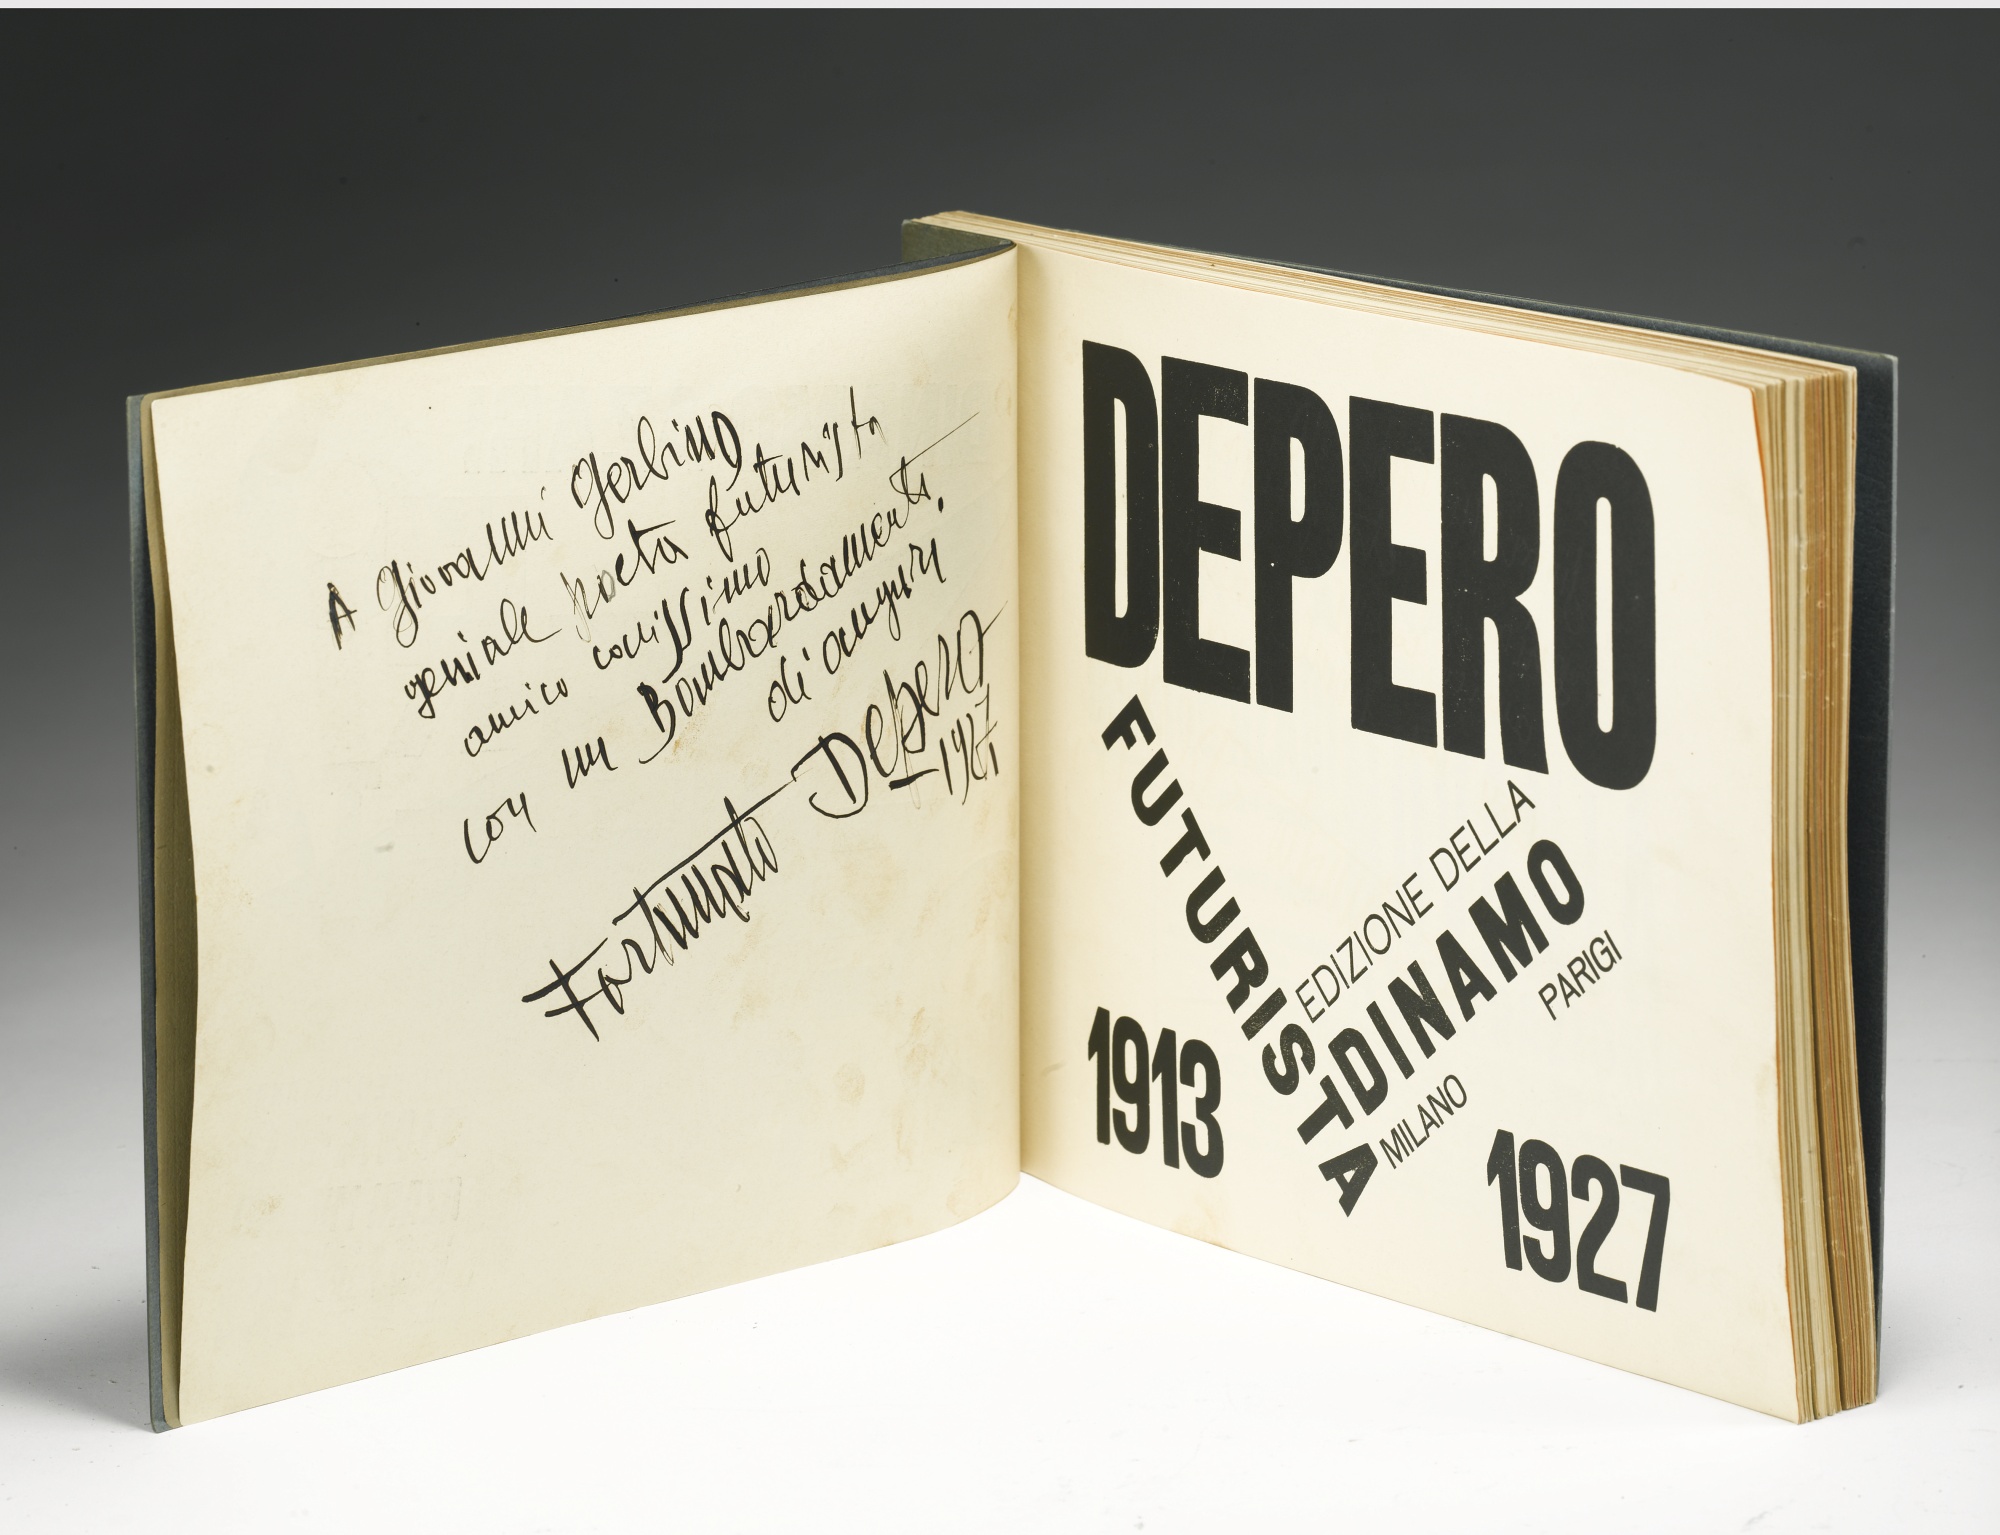 A Giovanni Gerbino
geniale poeta futurista
amico carissimo
con un Bombardamento
di auguri
Fortunato Depero
1927
DEPERO
FUTURISTA
EDIZIONE DELLA
DINAMO
PARIGI
MILANO
1913
1927